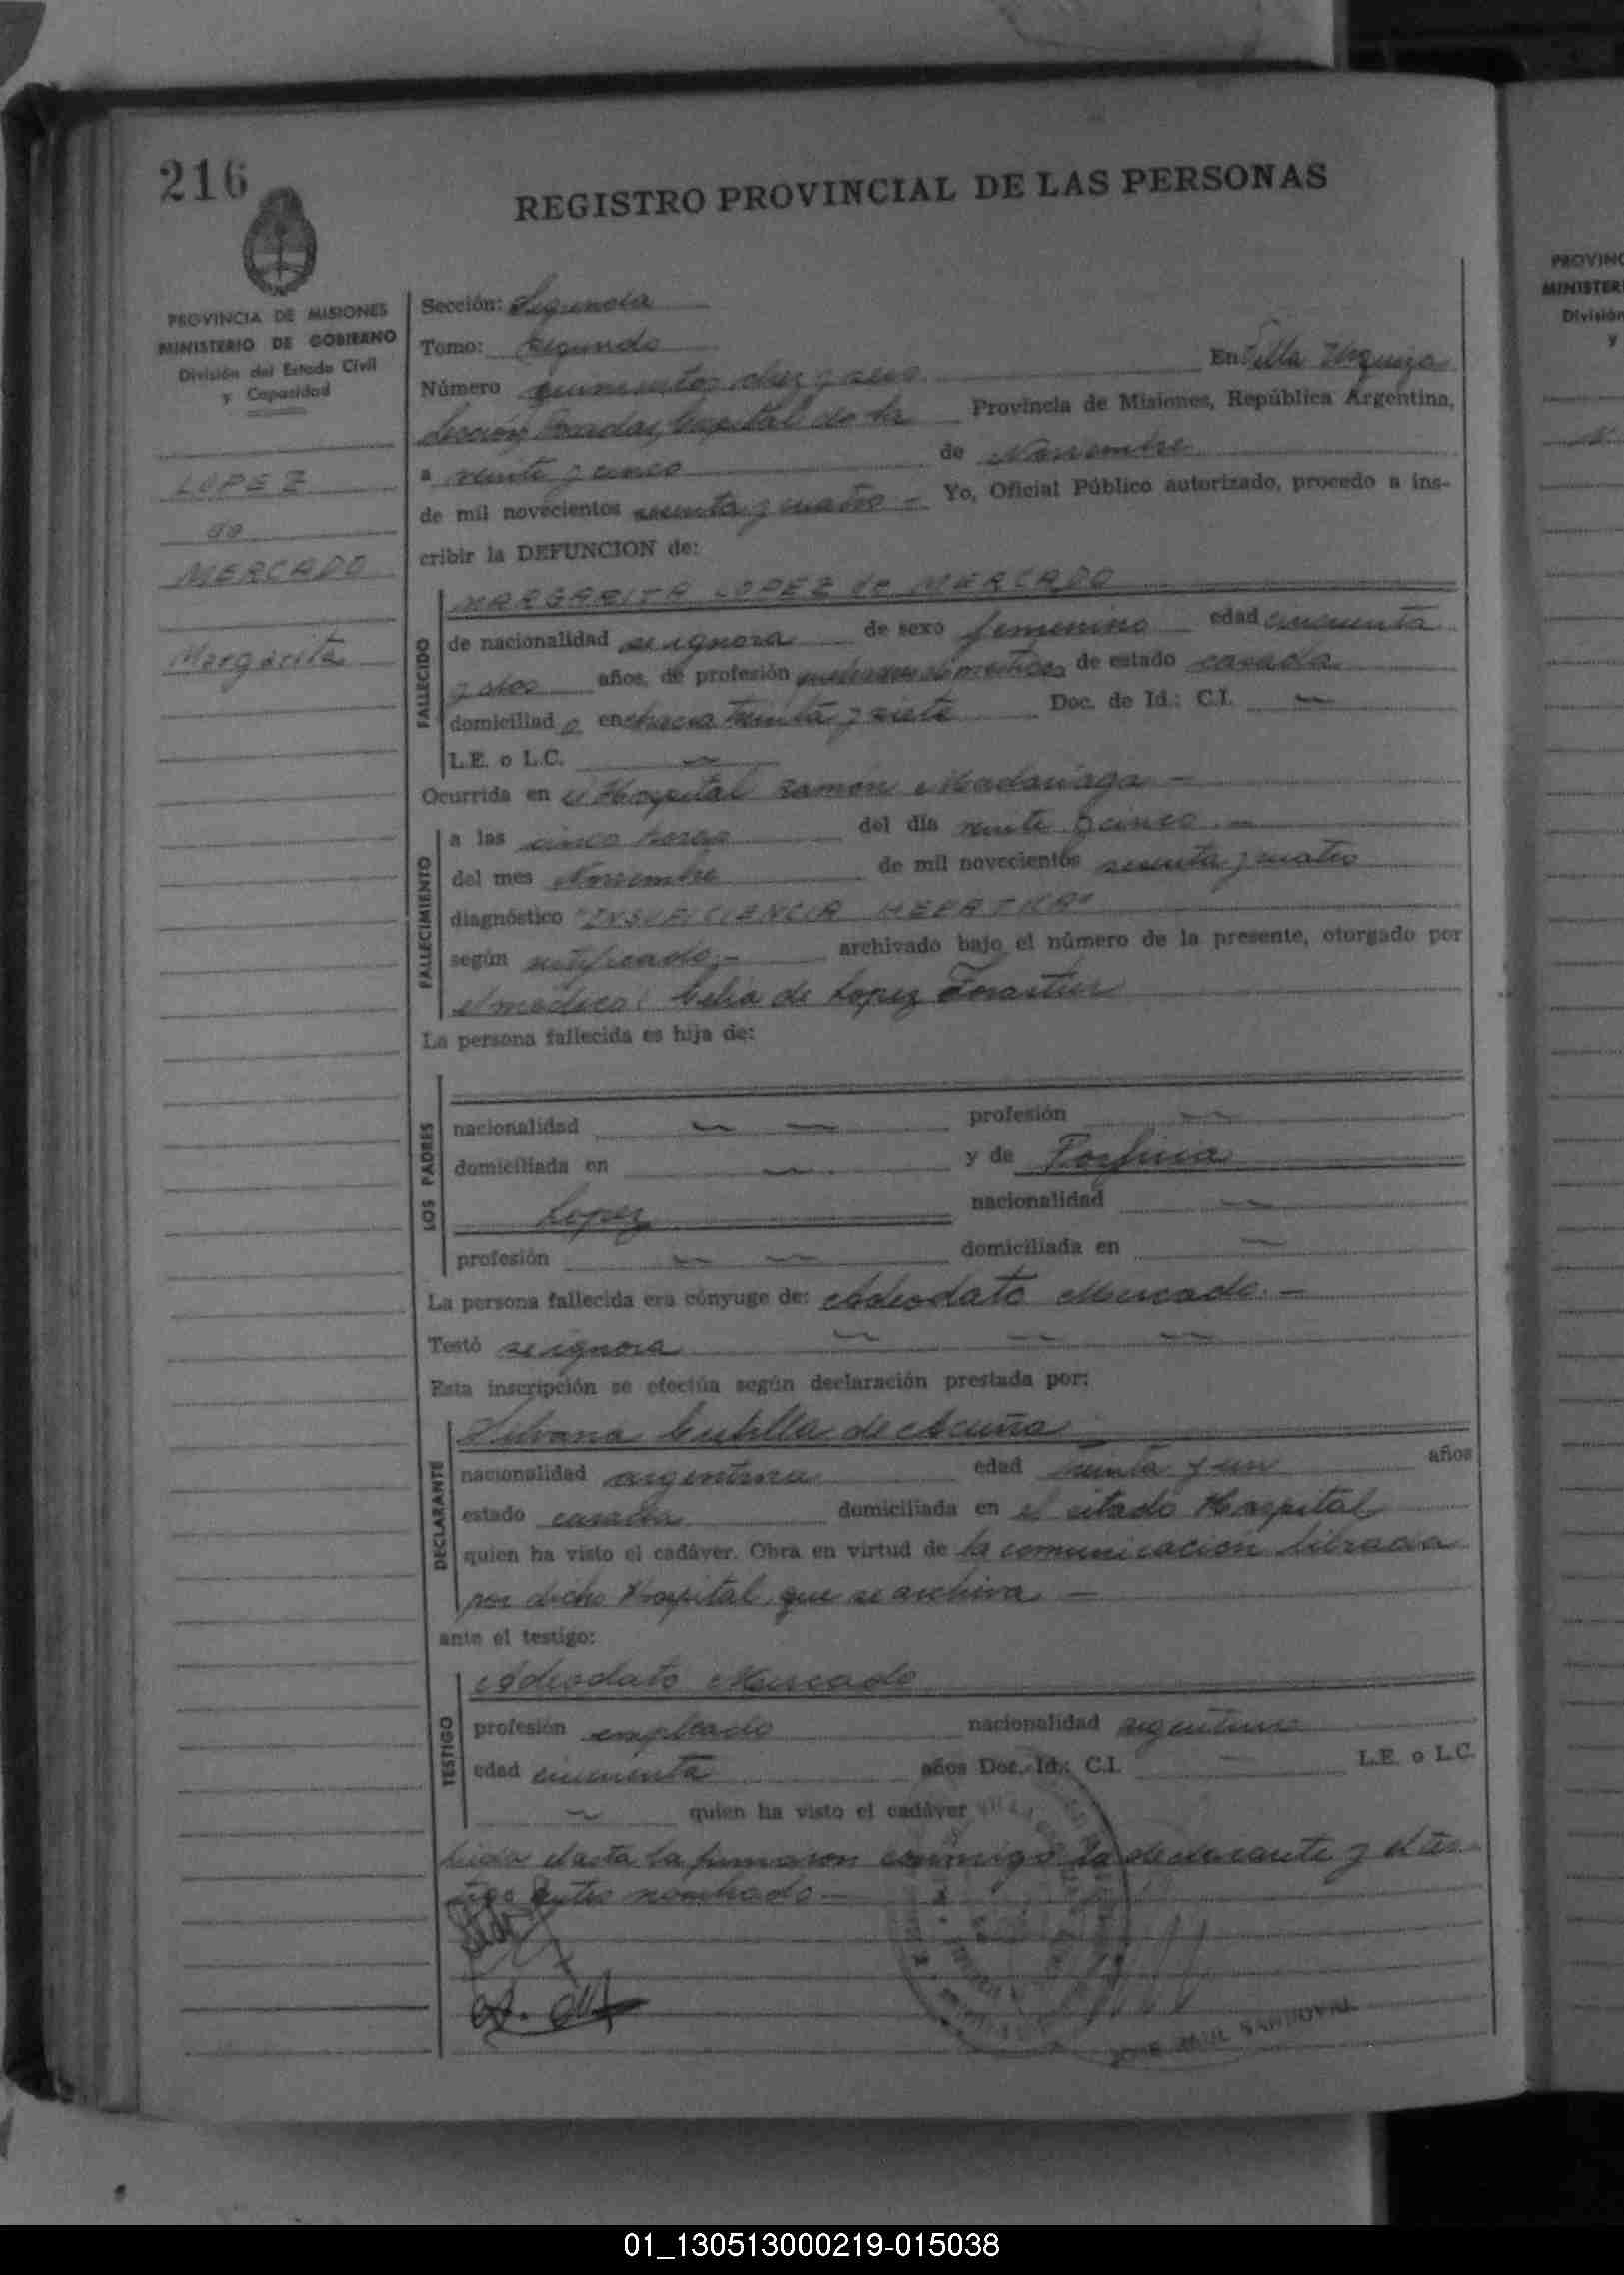 216
REGISTRO PROVINCIAL DE LAS PERSONAS
PROVINCIA DE MISIONES
MINISTERIO DE GOBIERNO
División del Estado Civil
y Capacidad
LOPEZ
de
MERCADO
Margarita
Sección: Segunda
Tomo: Segundo
Número quinientos diez y seis En Villa Urquiza
Sección, Posadas, Capital de la Provincia de Misiones, República Argentina,
a veinte y cinco de Noviembre
de mil novecientos sesenta y cuatro - Yo, Oficial Público autorizado, procedo a ins-
cribir la DEFUNCION de:
FALLECIDO
MARGARITA LOPEZ de MERCADO
de nacionalidad se ignora de sexo femenino edad cincuenta
y años, de profesión de estado casada
domiciliad a en chacra treinta y siete Doc. de Id.: C.I. —
L.E. o L.C. —
Ocurrida en el Hospital Ramón Madariaga -
FALLECIMIENTO
a las cinco horas del día veinte y cinco. -
del mes Noviembre de mil novecientos sesenta y cuatro
diagnóstico "INSUFICIENCIA HEPATICA"
según certificado. - archivado bajo el número de la presente, otorgado por
el médico: Celia de Lopez
La persona fallecida es hija de:
LOS PADRES
nacionalidad — — profesión —
domiciliada en — y de Porfiria
Lopez nacionalidad —
profesión — — domiciliada en —
La persona fallecida era cónyuge de: Adeodato Mercado. -
Testó se ignora — — —
Esta inscripción se efectúa según declaración prestada por:
DECLARANTE
Silvana de Acuña
nacionalidad argentina edad treinta y un años
estado casada domiciliada en el citado Hospital
quien ha visto el cadáver. Obra en virtud de la comunicación librada
por dicho Hospital, que se archiva -
ante el testigo:
TESTIGO
Adeodato Mercado
profesión empleado nacionalidad argentino
edad cincuenta años Doc. Id.: C.I. — L.E. o L.C.
— quien ha visto el cadáver
Leída el acta la firmaron conmigo la declarante y el tes-
tigo antes nombrado -
JOSE RAUL SANDOVAL
PROVINC
MINISTER
División
y
01_130513000219-015038